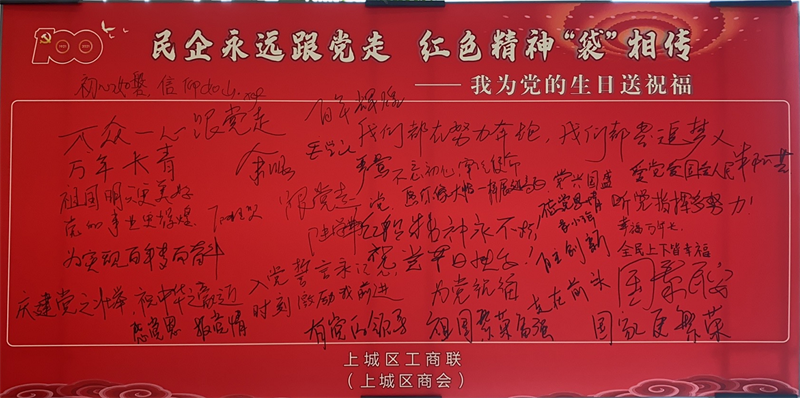 民企永远跟党走 红色精神“袋”相传
——我为党的生日送祝福
初心如磐,信仰如山
百年辉煌
万众一心 跟党走
我们都在努力奔跑,我们都是追梦人
万年长青
不忘初心
爱党爱国爱人民
祖国明天更美好
跟党走
党兴国盛
党的事业更辉煌
感党恩情
听党指挥多努力!
红船精神永不朽
幸福万年长
为实现百年梦奋斗
入党誓言永记
祝党节日快乐!
自主创新
全民上下皆幸福
庆建党之壮举,祝中华之
时刻激励我前进
为党祝福
走在前头
国泰民安
感党恩 报党情
有党的领导 祖国繁荣富强
国家更繁荣
上城区工商联
(上城区商会)